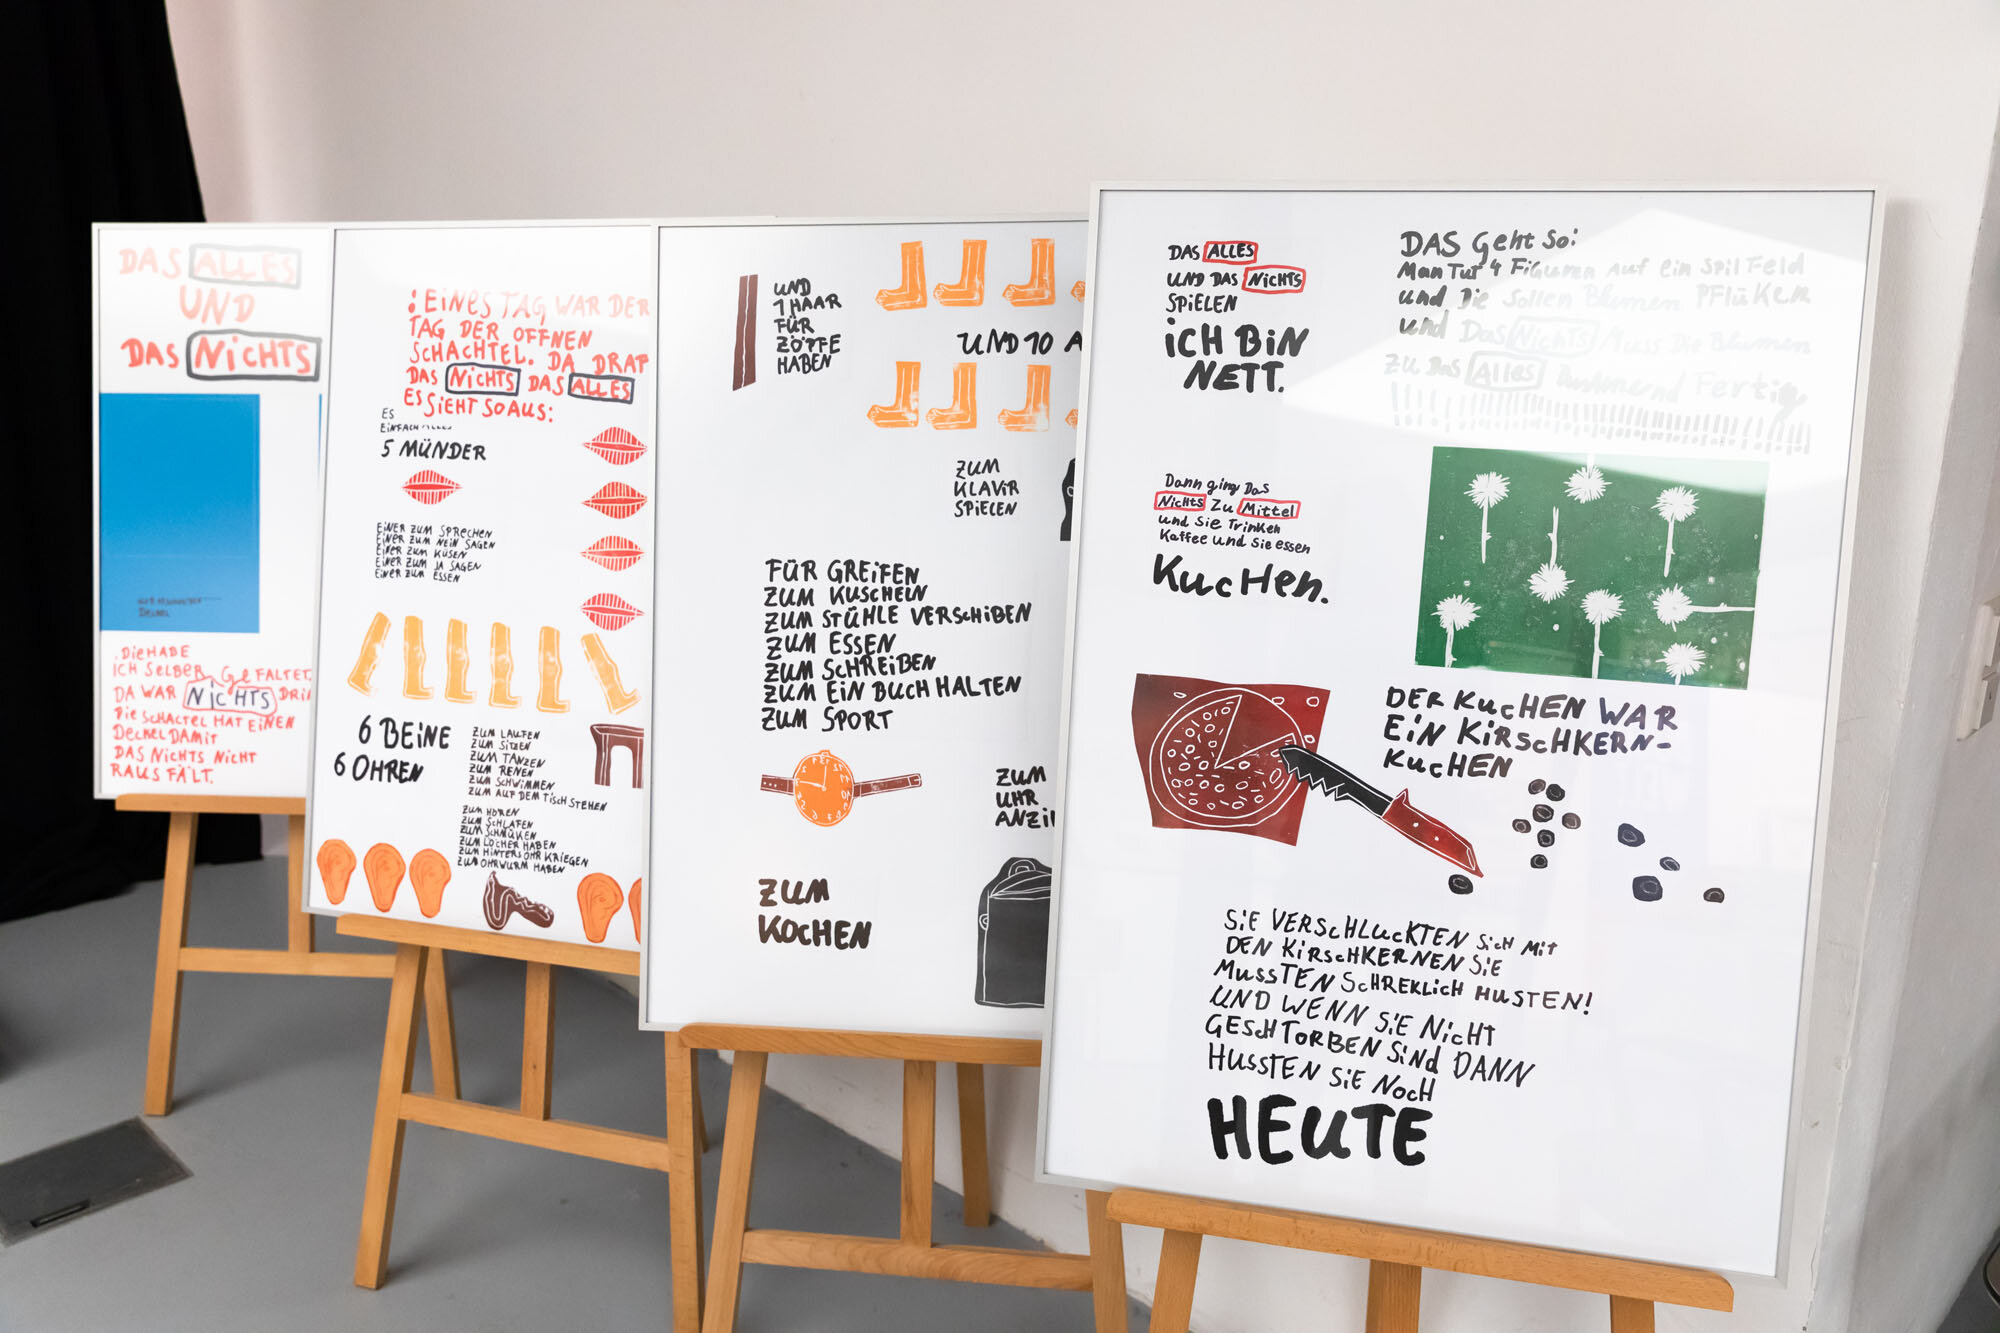 DAS ALLES
UND
DAS NiCHTS
DECKEL
.DieHABE
ICH SELBER GeFALTET.
DA WAR NICHTS DRIN
Die SCHACTEL HAT EiNEN
DECKEL DAMIT
DAS NiCHTS NiCHT
RAUS FÄLT.
: EiNES TAG WAR DER
TAG DER OFFNEN
SCHACHTEL. DA DRAT
DAS NiCHTS DAS ALLES
ES SiEHT SO AUS:
ES
EiNFACH ALLES
5 MÜNDER
EiNER ZUM SPRECHEN
EiNER ZUM NEiN SAGEN
EiNER ZUM KÜSEN
EiNER ZUM JA SAGEN
EiNER ZUM ESSEN
6 BEiNE
6 OHREN
ZUM LAUFEN
ZUM SiTZEN
ZUM TANZEN
ZUM RENEN
ZUM SCHWiMMEN
ZUM AUF DEM TiSCH STEHEN
ZUM HÖREN
ZUM SCHLAFEN
ZUM SCHMÜKEN
ZUM LÖCHER HABEN
ZUM HiNTERS OHR KRiEGEN
ZUM OHRWURM HABEN
UND
1 HAAR
FÜR
ZÖTFE
HABEN
UND 10 A
ZUM
KLAViR
SPiELEN
FÜR GREiFEN
ZUM KUSCHELN
ZUM STÜHLE VERSCHiBEN
ZUM ESSEN
ZUM SCHREiBEN
ZUM EiN BUCH HALTEN
ZUM SPORT
ZUM
UHR
ANZi
ZUM
KOCHEN
DAS ALLES
UND DAS NiCHTS
SPiELEN
iCH BiN
NETT.
DAS Geht So:
Man Tut 4 Figuren Auf ein Spilfeld
und Die Sollen Blumen PFlüKeR
und Das Nichts Muss Die Blumen
ZU DAS Alles Fertig
Dann ging Das
Nichts Zu Mittel
und Sie Trinken
Kaffee und Sie essen
KucHen.
DER KucHEN WAR
EiN KiRSCHKERN-
KucHEN
SiE VERSCHLUCKTEN SiCH MiT
DEN KiRSCHKERNEN SiE
MUSSTEN SCHREKLiCH HUSTEN!
UND WENN SiE NiCHT
GESCHTORBEN SiND DANN
HUSSTEN SiE NOCH
HEUTE